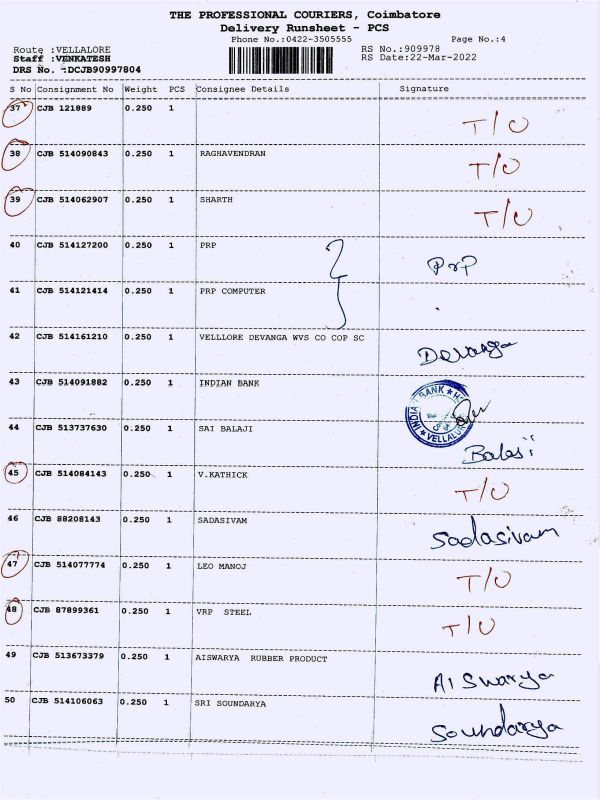 THE PROFESSIONAL COURIERS, Coimbatore
Delivery Runsheet - PCS
Phone No.:0422-3505555 Page No.:4
Route :VELLALORE RS No.:909978
Staff :VENKATESH RS Date:22-Mar-2022
DRS No. :DCJB90997804
S No Consignment No Weight PCS Consignee Details Signature
37 CJB 121889 0.250 1 T/O
38 CJB 514090843 0.250 1 RAGHAVENDRAN T/O
39 CJB 514062907 0.250 1 SHARTH T/O
40 CJB 514127200 0.250 1 PRP PrP
41 CJB 514121414 0.250 1 PRP COMPUTER
42 CJB 514161210 0.250 1 VELLLORE DEVANGA WVS CO COP SC Devanga
43 CJB 514091882 0.250 1 INDIAN BANK
44 CJB 513737630 0.250 1 SAI BALAJI Balaji
45 CJB 514084143 0.250 1 V.KATHICK T/O
46 CJB 88208143 0.250 1 SADASIVAM Sadasivam
47 CJB 514077774 0.250 1 LEO MANOJ T/O
48 CJB 87899361 0.250 1 VRP STEEL T/O
49 CJB 513673379 0.250 1 AISWARYA RUBBER PRODUCT AISwarya
50 CJB 514106063 0.250 1 SRI SOUNDARYA Soundarya